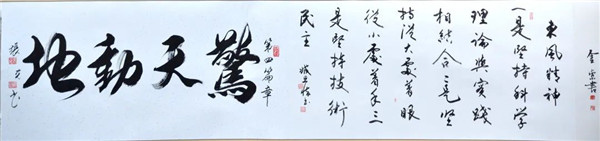 东風精神
一是堅持科學
理論與實踐
相結合二是堅
持從大處着眼
從小處着手三
是堅持技術
民主
第四篇章
驚天動地